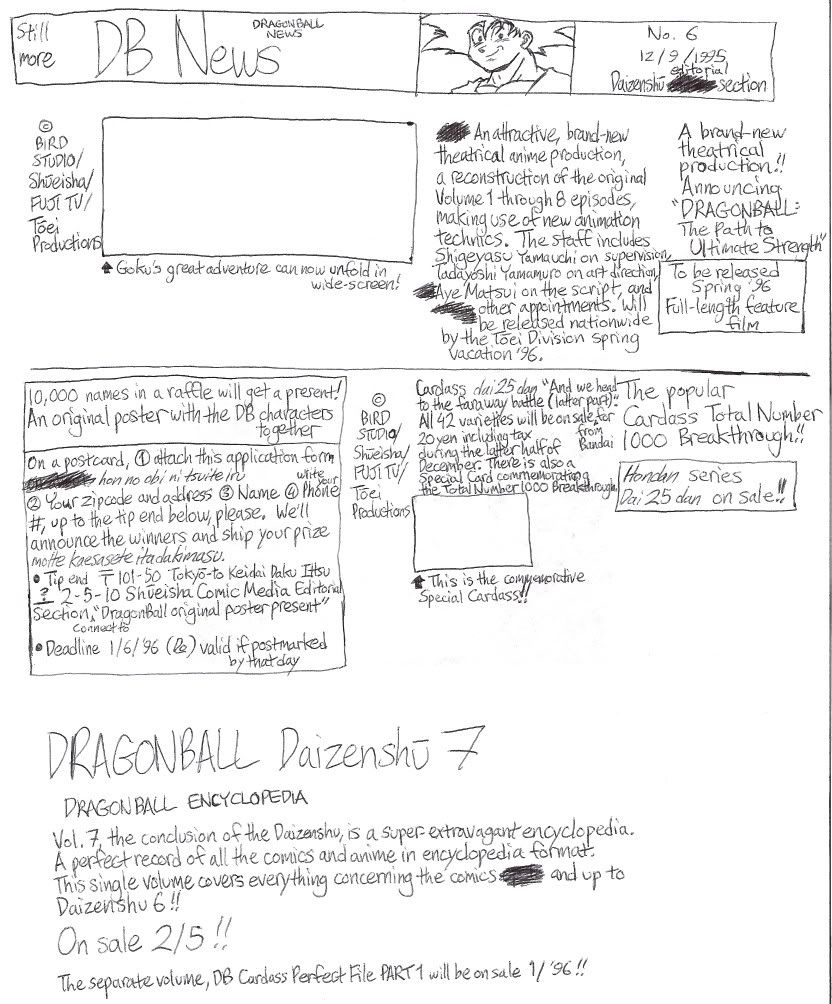 Still more
DB News
DRAGONBALL
NEWS
No. 6
12/9/1995
editorial
Daizenshū section
©
BIRD
STUDIO/
Shūeisha/
FUJI TV/
Tōei
Productions
↑ Goku's great adventure can now unfold in
wide-screen!
An attractive, brand-new
theatrical anime production,
a reconstruction of the original
Volume 1 through 8 episodes,
making use of new animation
technics. The staff includes
Shigeyasu Yamauchi on supervision,
Tadayoshi Yamamuro on art direction,
Aye Matsui on the script, and
other appointments. Will
be released nationwide
by the Tōei Division spring
vacation '96.
A brand-new
theatrical
production!!
Announcing
"DRAGONBALL:
The Path to
Ultimate Strength"
To be released
Spring '96
Full-length feature
film
10,000 names in a raffle will get a present!
An original poster with the DB characters
together
On a postcard, ① attach this application form
hon no obi ni tsuite iru write your
② Your zipcode and address ③ Name ④ Phone
#, up to the tip end below, please. We'll
announce the winners and ship your prize
motte kaesasete itadakimasu.
• Tip end 〒101-50 Tokyō-to Keidai Daku Ittsu
? 2-5-10 Shūeisha Comic Media Editorial
Section, "DragonBall original poster present"
connect to
• Deadline 1/6/'96 valid if postmarked
by that day
©
BIRD
STUDIO/
Shūeisha/
FUJI TV/
Tōei
Productions
Cardass dai 25 dan "And we head
to the faraway battle (latter part)".
All 42 varieties will be on sale, for
20 yen including tax from Bandai
during the latter half of
December. There is also a
Special Card commemorating
the Total Number 1000 Breakthrough.
↑ This is the commemorative
Special Cardass!!
The popular
Cardass Total Number
1000 Breakthrough!!
Hondan series
Dai 25 dan on sale!!
DRAGONBALL Daizenshū 7
DRAGONBALL ENCYCLOPEDIA
Vol. 7, the conclusion of the Daizenshu, is a super-extravagant encyclopedia.
A perfect record of all the comics and anime in encyclopedia format.
This single volume covers everything concerning the comics and up to
Daizenshu 6!!
On sale 2/5!!
The separate volume, DB Cardass Perfect File PART 1 will be on sale 1/'96!!